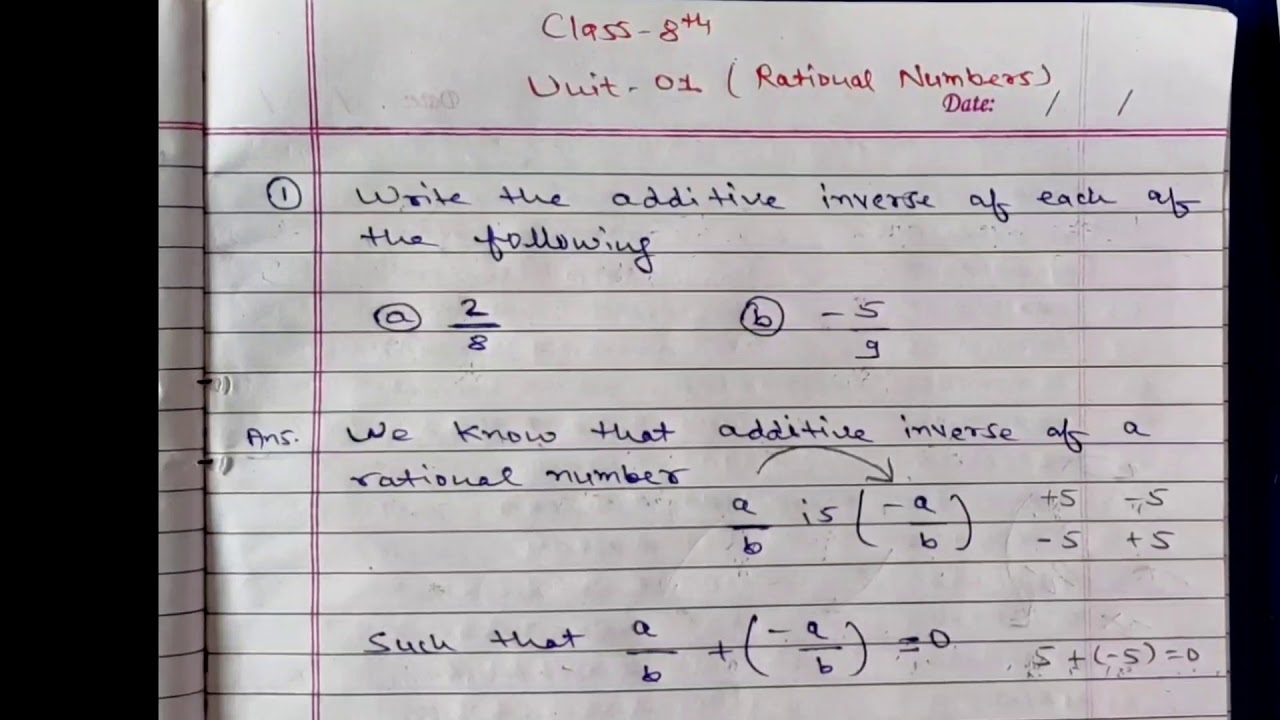 Class-8th
Unit-01 (Rational Numbers)
Date: / /
① Write the additive inverse of each of
the following
ⓐ 2/8 ⓑ -5/9
Ans. We know that additive inverse of a
rational number
a/b is (-a/b) +5 -5
-5 +5
Such that a/b + (-a/b) = 0 5 + (-5) = 0